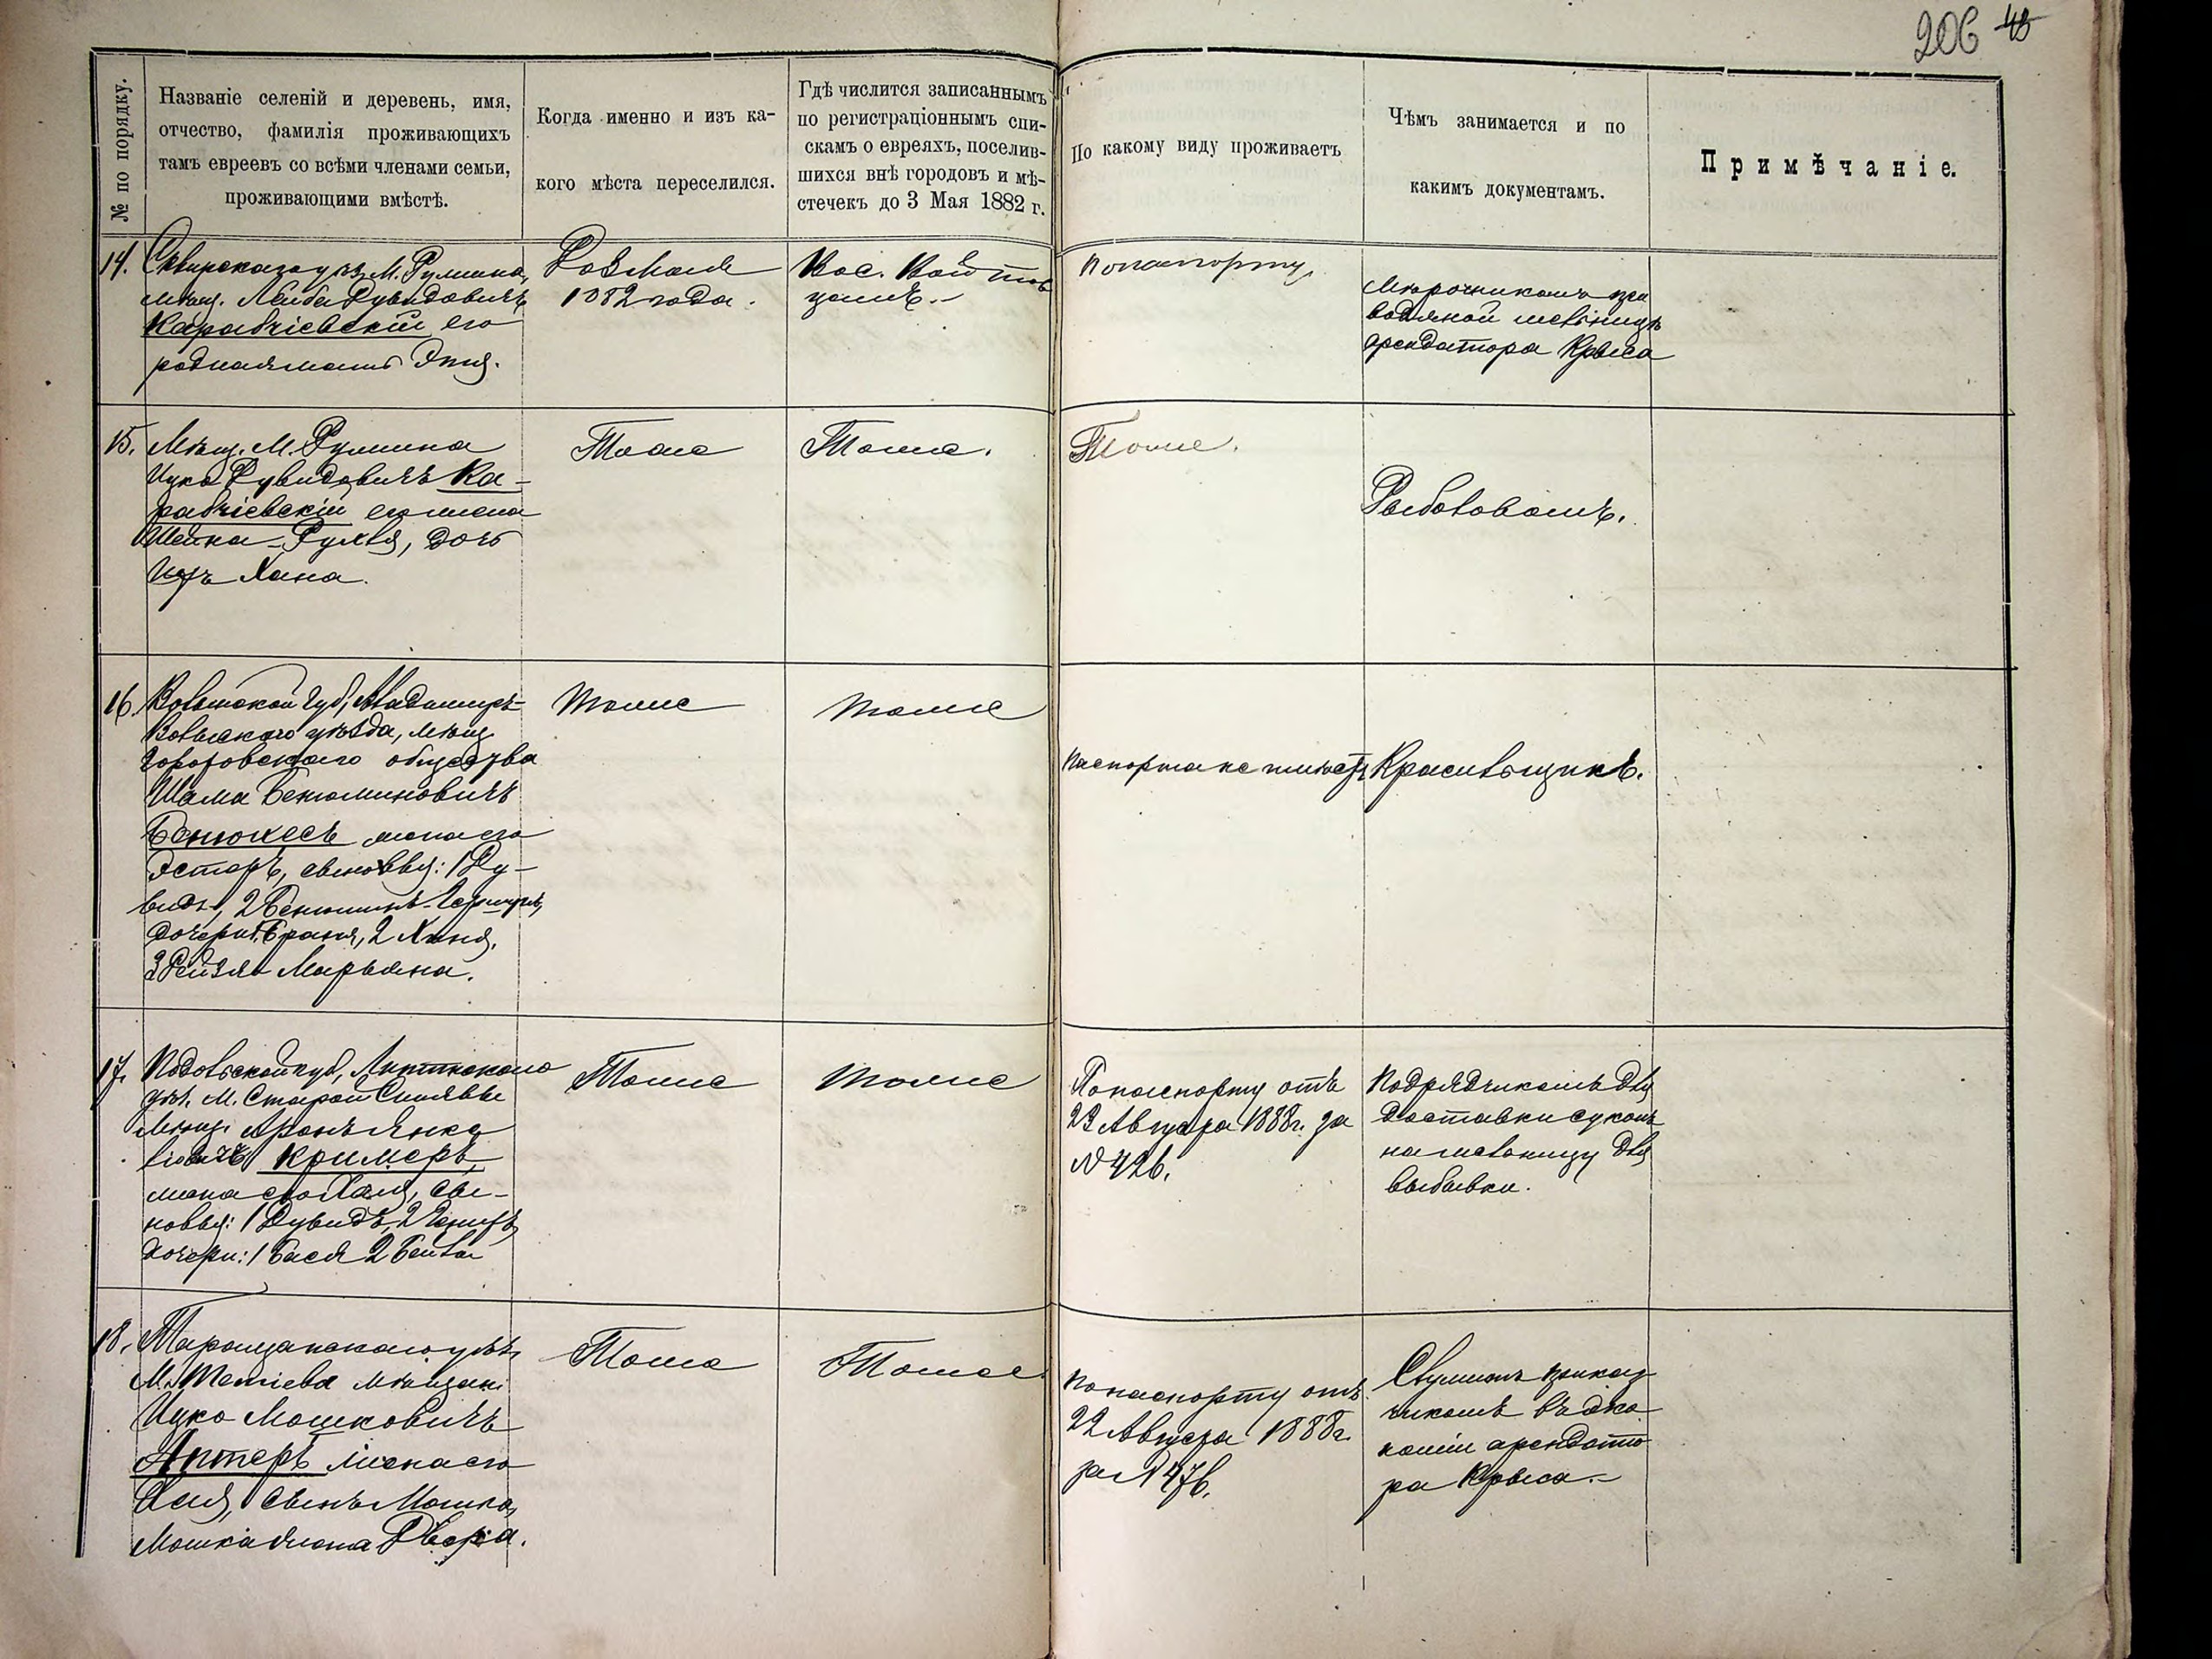 206 43
№ по порядку.
Названіе селеній и деревень, имя,
отчество, фамилія проживающихъ
тамъ евреевъ со всѣми членами семьи,
проживающими вмѣстѣ.
Когда именно и изъ ка-
кого мѣста переселился.
Гдѣ числится записаннымъ
по регистраціоннымъ спи-
скамъ о евреяхъ, поселив-
шихся внѣ городовъ и мѣ-
стечекъ до 3 Мая 1882 г.
По какому виду проживаетъ
Чѣмъ занимается и по
какимъ документамъ.
Примѣчаніе.
14. Сквирскаго уѣз. М. Ружина,
мѣщ. Лейба Дувидовичъ
Карабчіевскій его
родная мать Этя.
До 3 Мая
1882 года.
По паспорту
Мѣрочникомъ при
водяной мельницѣ
арендатора Крыса
15. Мѣщ. М. Ружина
Ицко Дувидовичъ Ка-
рабчіевскій его жена
Шейна-Рухля, дочь
ихъ Хана.
Тоже
Тоже.
Тоже.
Рыболовомъ.
16. Волынской губ., Владимиръ-
Волынского уѣзда, мѣщ.
Гороховскаго общества
Шама Бенюминовичъ
жена его
Эстеръ, сыновья: 1 Ду-
видъ, 2 Бенюминъ-
дочери: 1 Браня, 2 Хиня,
3 Рейзя Марьяна.
Тоже
Тоже
Паспорта не имѣетъ
Красильщикъ.
17. Подольской губ.,
уѣз. М. Старой Синявы
мѣщ. Аронъ Янке-
ліовичъ Кримеръ,
жена его Хая, сы-
новья: 1 Дувидъ, 2
дочери: 1 Бася 2 Бейла
Тоже
Тоже
По паспорту отъ
23 Августа 1888 г. за
№ 426.
Подрядчикомъ для
доставки суконъ
на мельницу для
выбивки.
18. Таращанскаго уѣз.
М. Тетіева мѣщан.
Ицко Мошковичъ
Аптеръ жена его
Ася, сынъ Мошко,
Мошка жена Двойра.
Тоже
Тоже
По паспорту отъ
22 Августа 1888 г.
за № 476.
Служитъ приказ-
чикомъ въ эко-
номіи арендато-
ра Крыса.